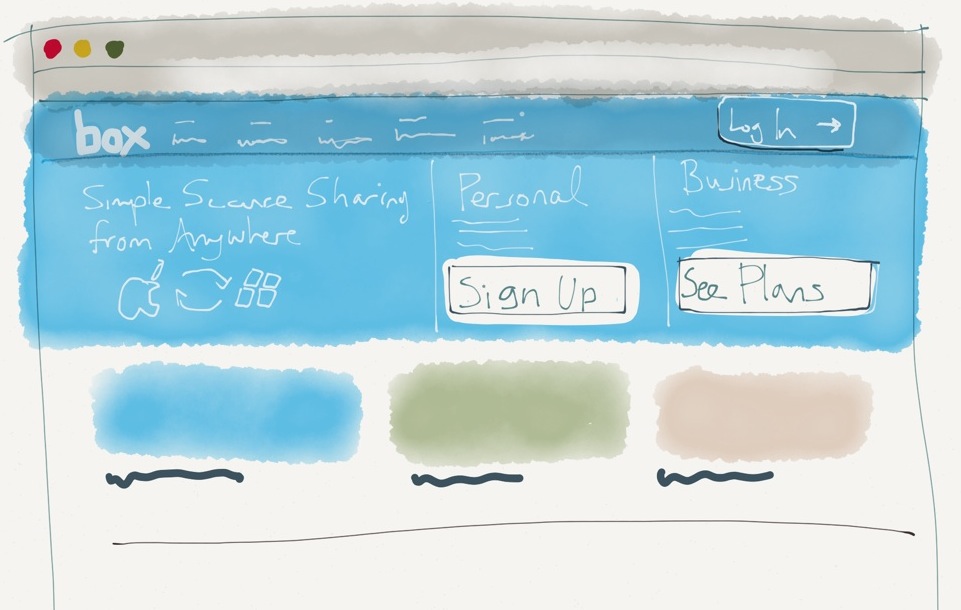 box
Log In →
Simple Secure Sharing
from Anywhere
Personal
Sign Up
Business
See Plans